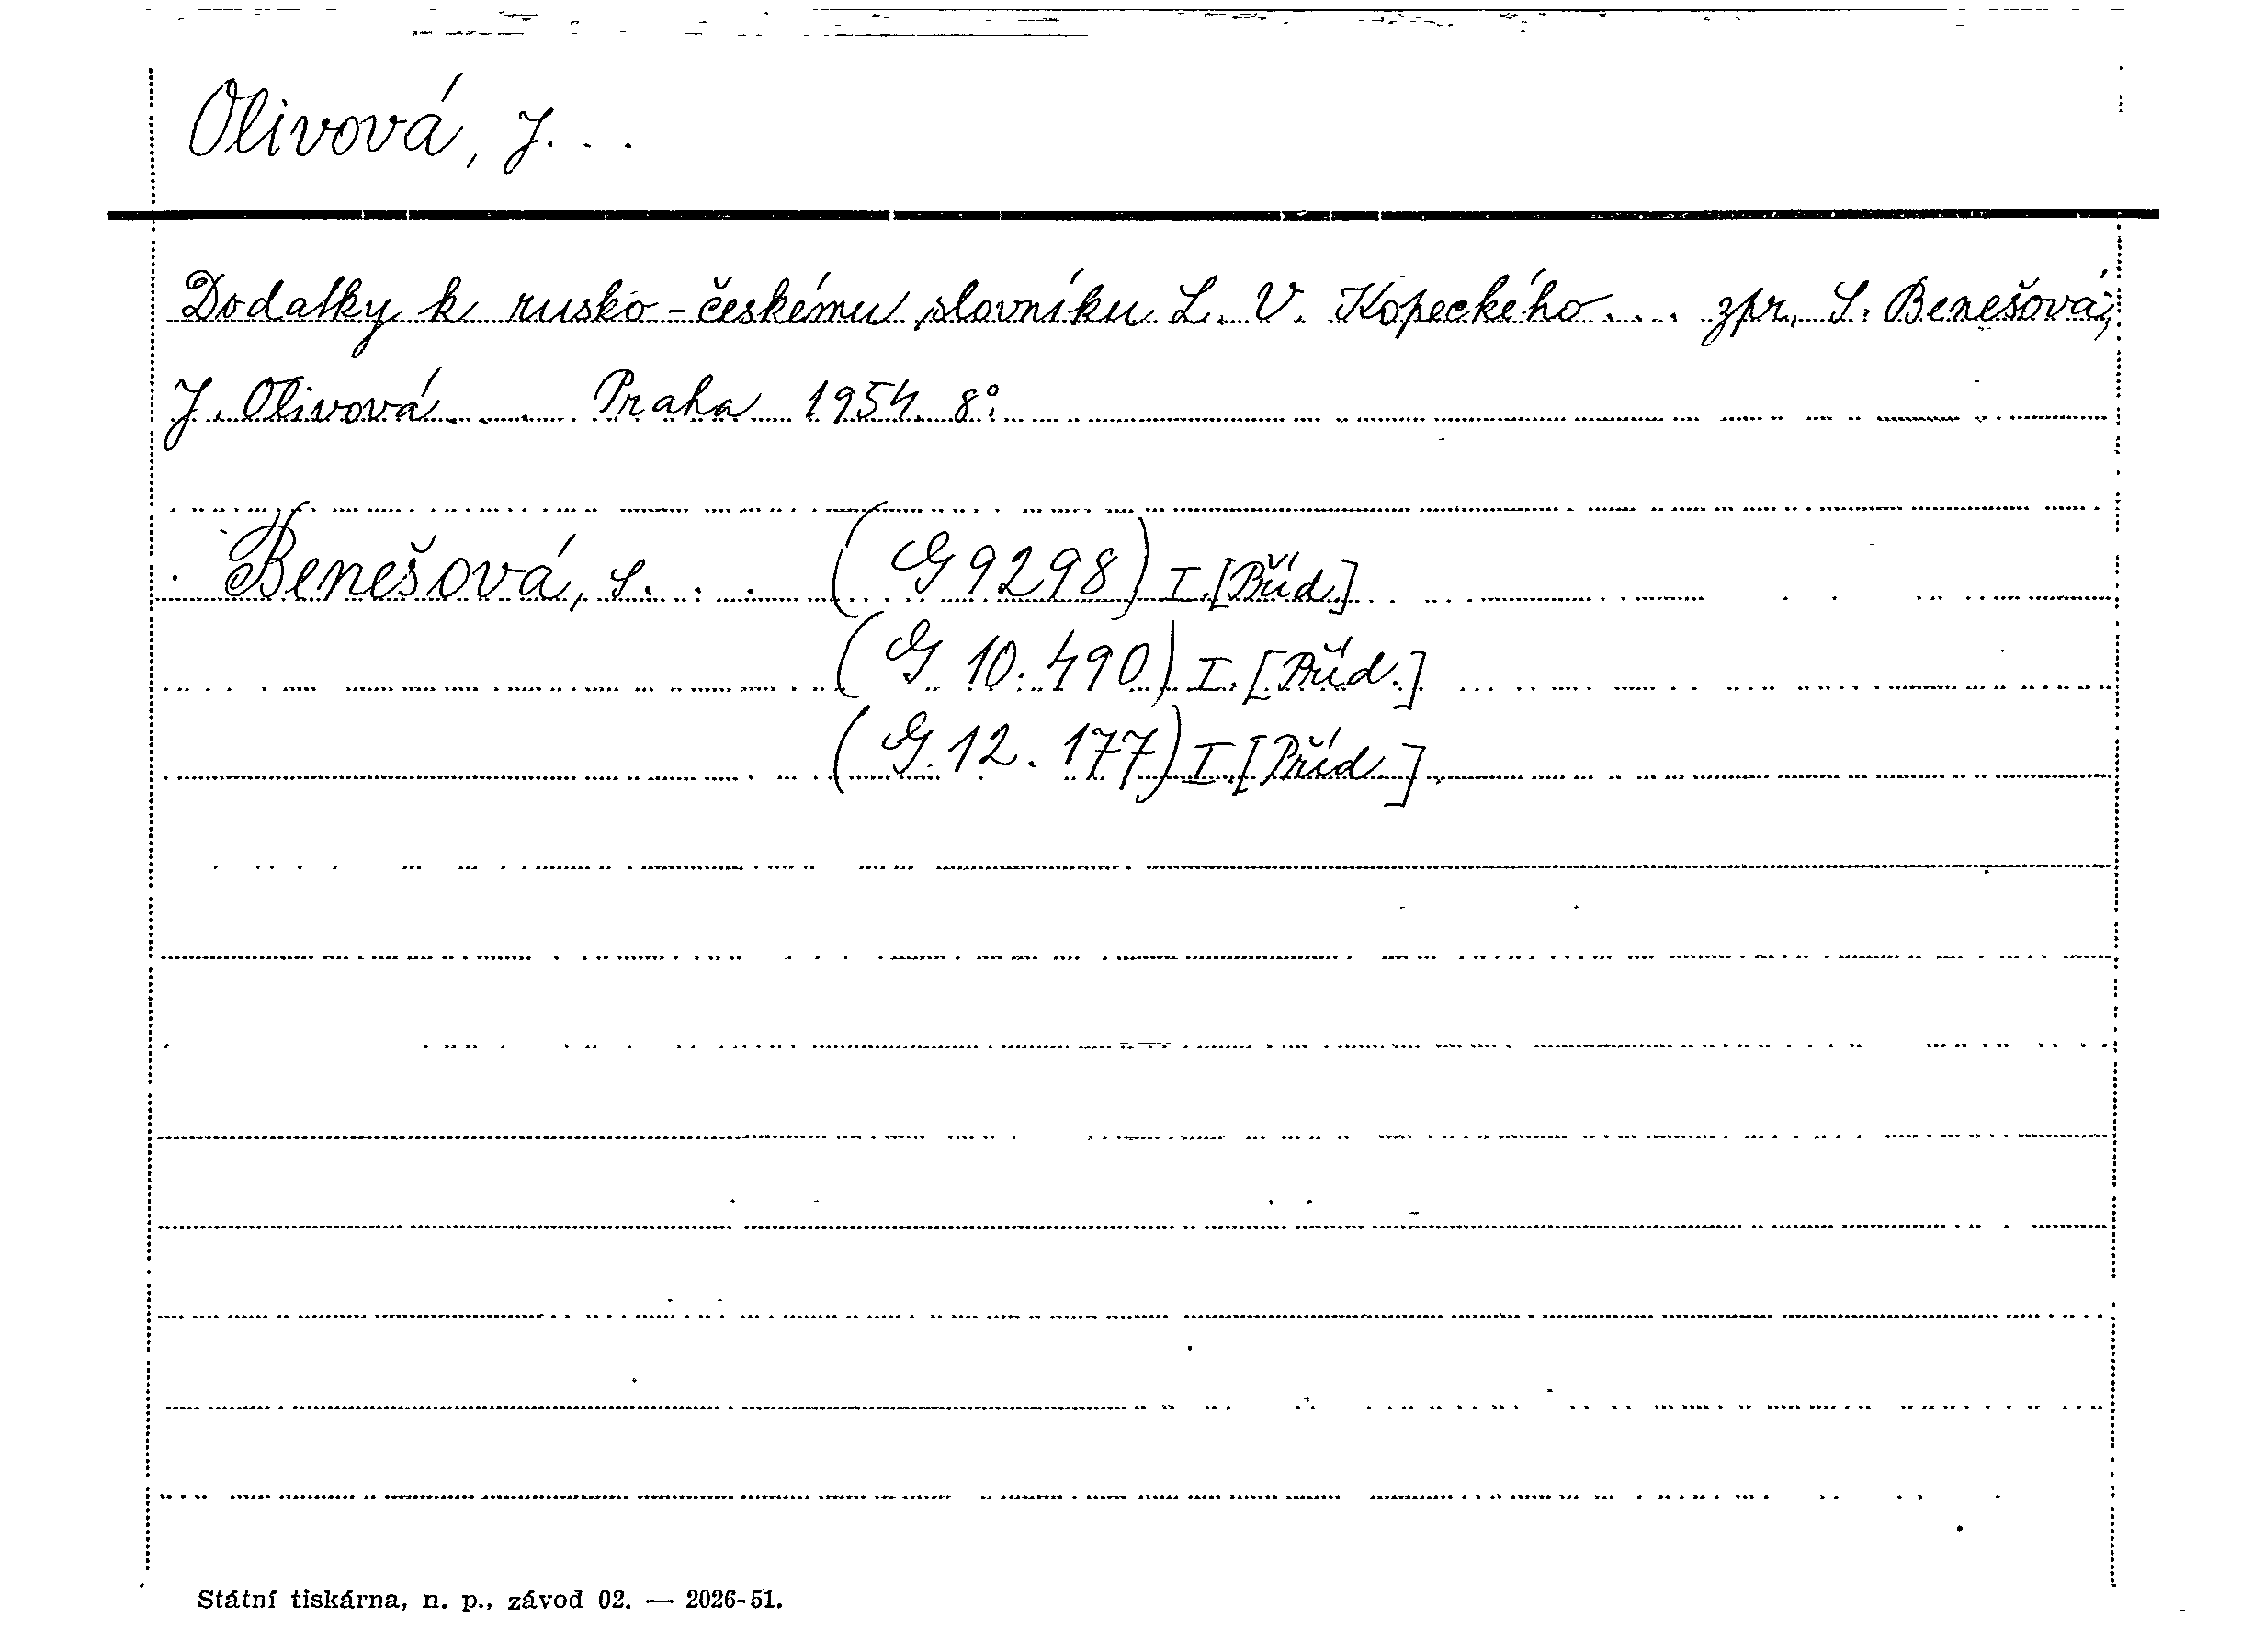 Olivová, J. . .
Dodatky k rusko-českému slovníku L. V. Kopeckého... zpr. S. Benešová,
J. Olivová . . Praha 1954. 8°.
Benešová, S. . . (G 9298) I.[Příd.]
(G 10.490) I. [Příd.]
(G 12.177) I. [Příd.]
Státní tiskárna, n. p., závod 02. — 2026-51.